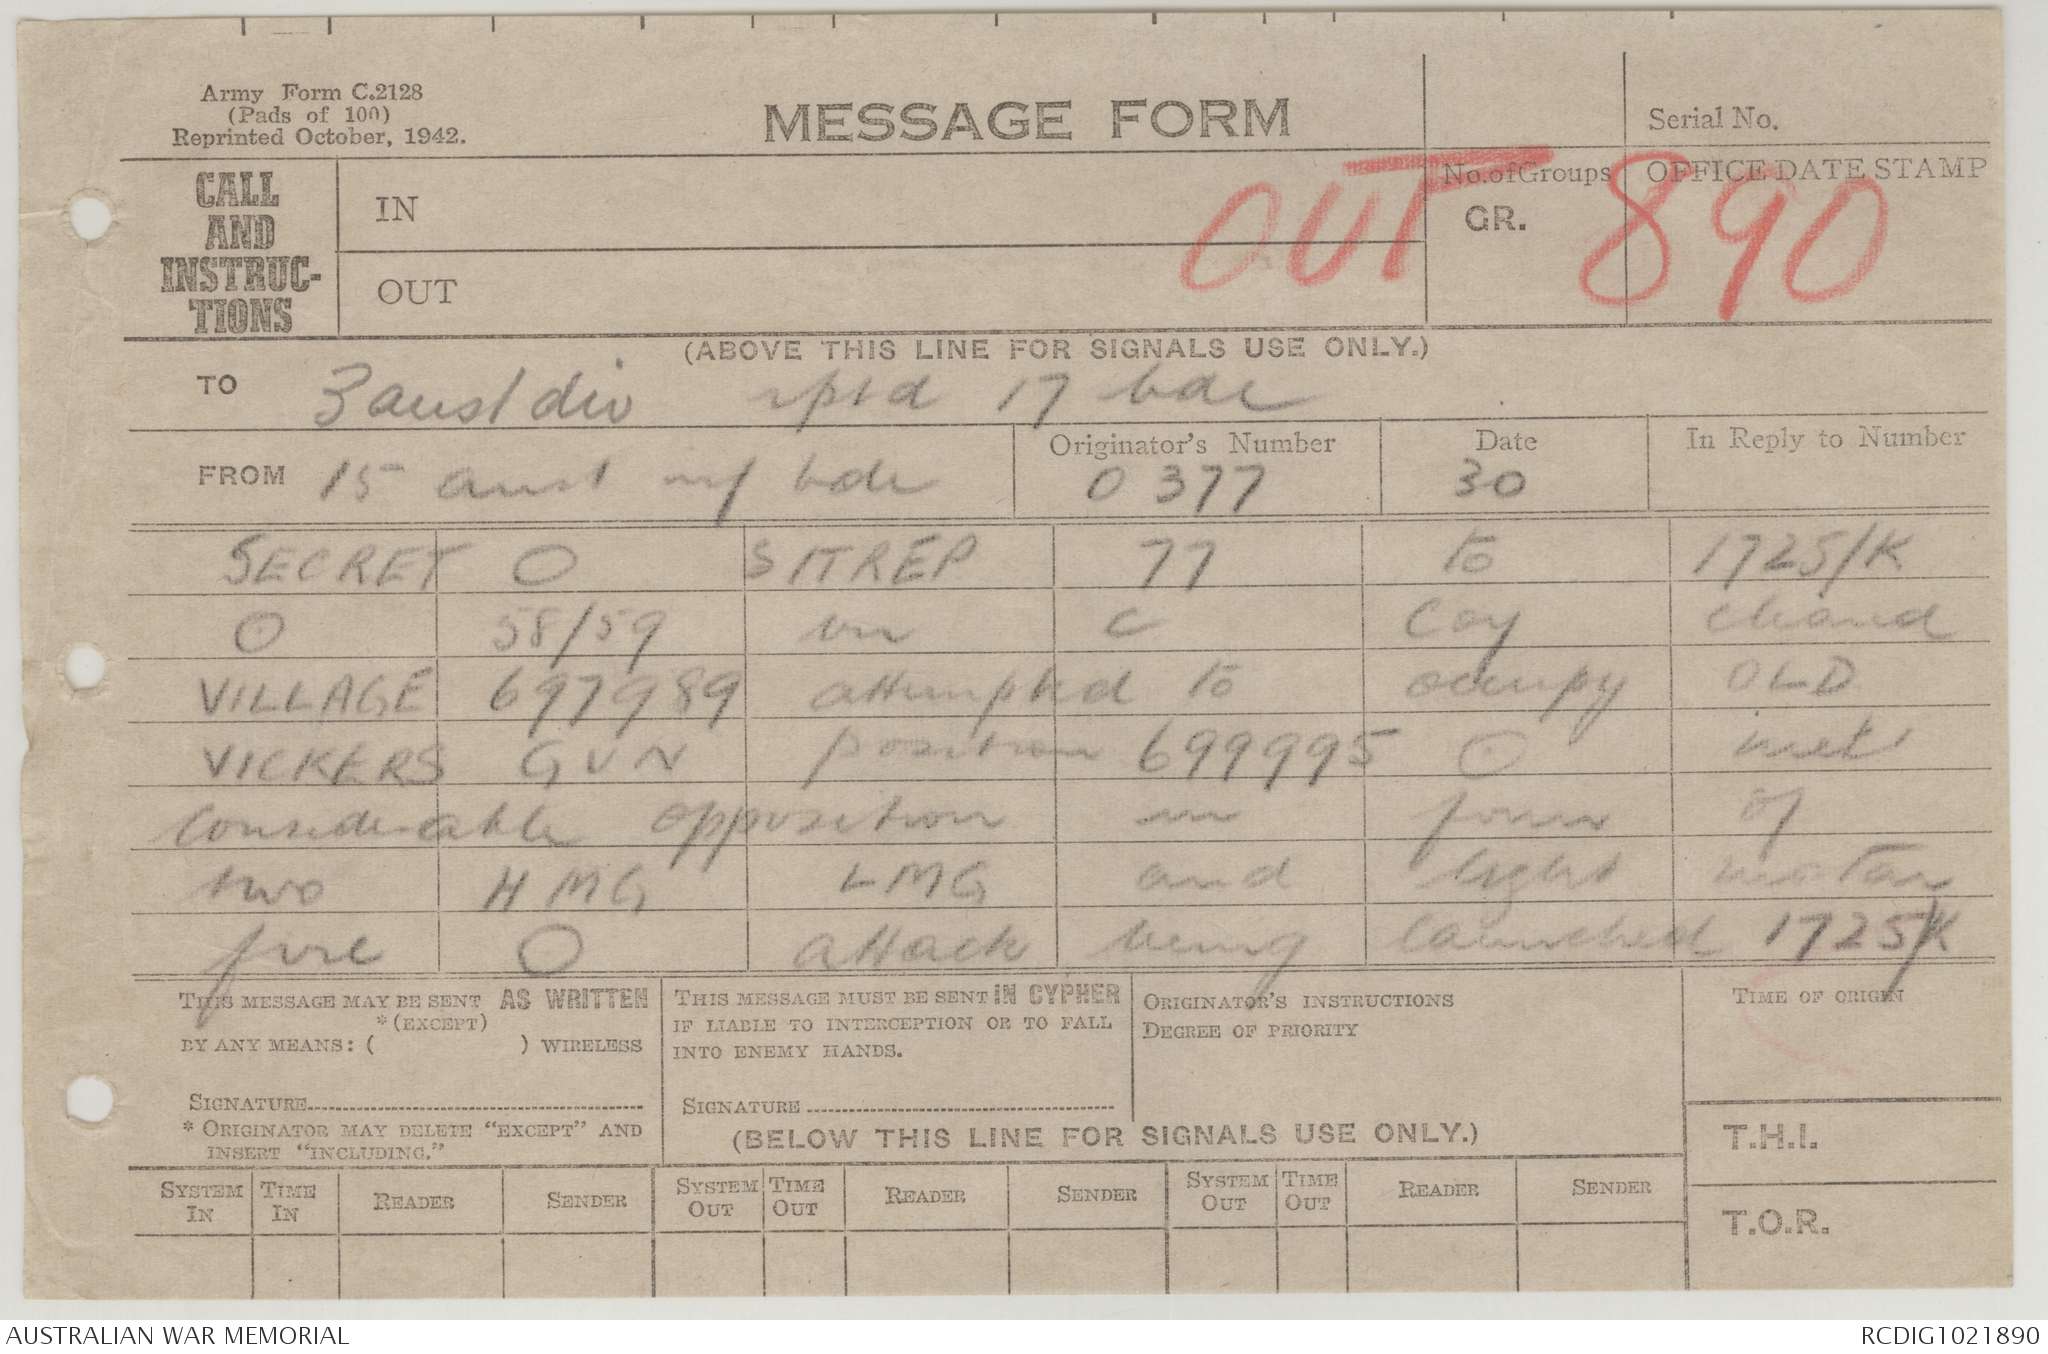 Army Form C.2128
(Pads of 100)
Reprinted October, 1942.
MESSAGE FORM
Serial No.
CALL AND INSTRUC-TIONS
IN
OUT
OUT
No. of Groups
GR.
OFFICE DATE STAMP
890
(ABOVE THIS LINE FOR SIGNALS USE ONLY.)
TO 3 aust div rptd 17 bde
FROM 15 aust inf bde
Originator's Number
0377
Date
30
In Reply to Number
SECRET O SITREP 77 to 1725/K
O 58/59 bn C Coy
VILLAGE 697989 attempted to occupy OLD
VICKERS GUN position 699995 O met
considerable opposition in form of
two HMG LMG and light mortar
fire O attack being launched 1725/K
THIS MESSAGE MAY BE SENT AS WRITTEN
*(EXCEPT)
BY ANY MEANS: ( ) WIRELESS
SIGNATURE
* ORIGINATOR MAY DELETE "EXCEPT" AND
INSERT "INCLUDING."
THIS MESSAGE MUST BE SENT IN CYPHER
IF LIABLE TO INTERCEPTION OR TO FALL
INTO ENEMY HANDS.
SIGNATURE
ORIGINATOR'S INSTRUCTIONS
DEGREE OF PRIORITY
TIME OF ORIGIN
(BELOW THIS LINE FOR SIGNALS USE ONLY.)
T.H.I.
T.O.R.
SYSTEM IN TIME IN READER SENDER SYSTEM OUT TIME OUT READER SENDER SYSTEM OUT TIME OUT READER SENDER
AUSTRALIAN WAR MEMORIAL
RCDIG1021890